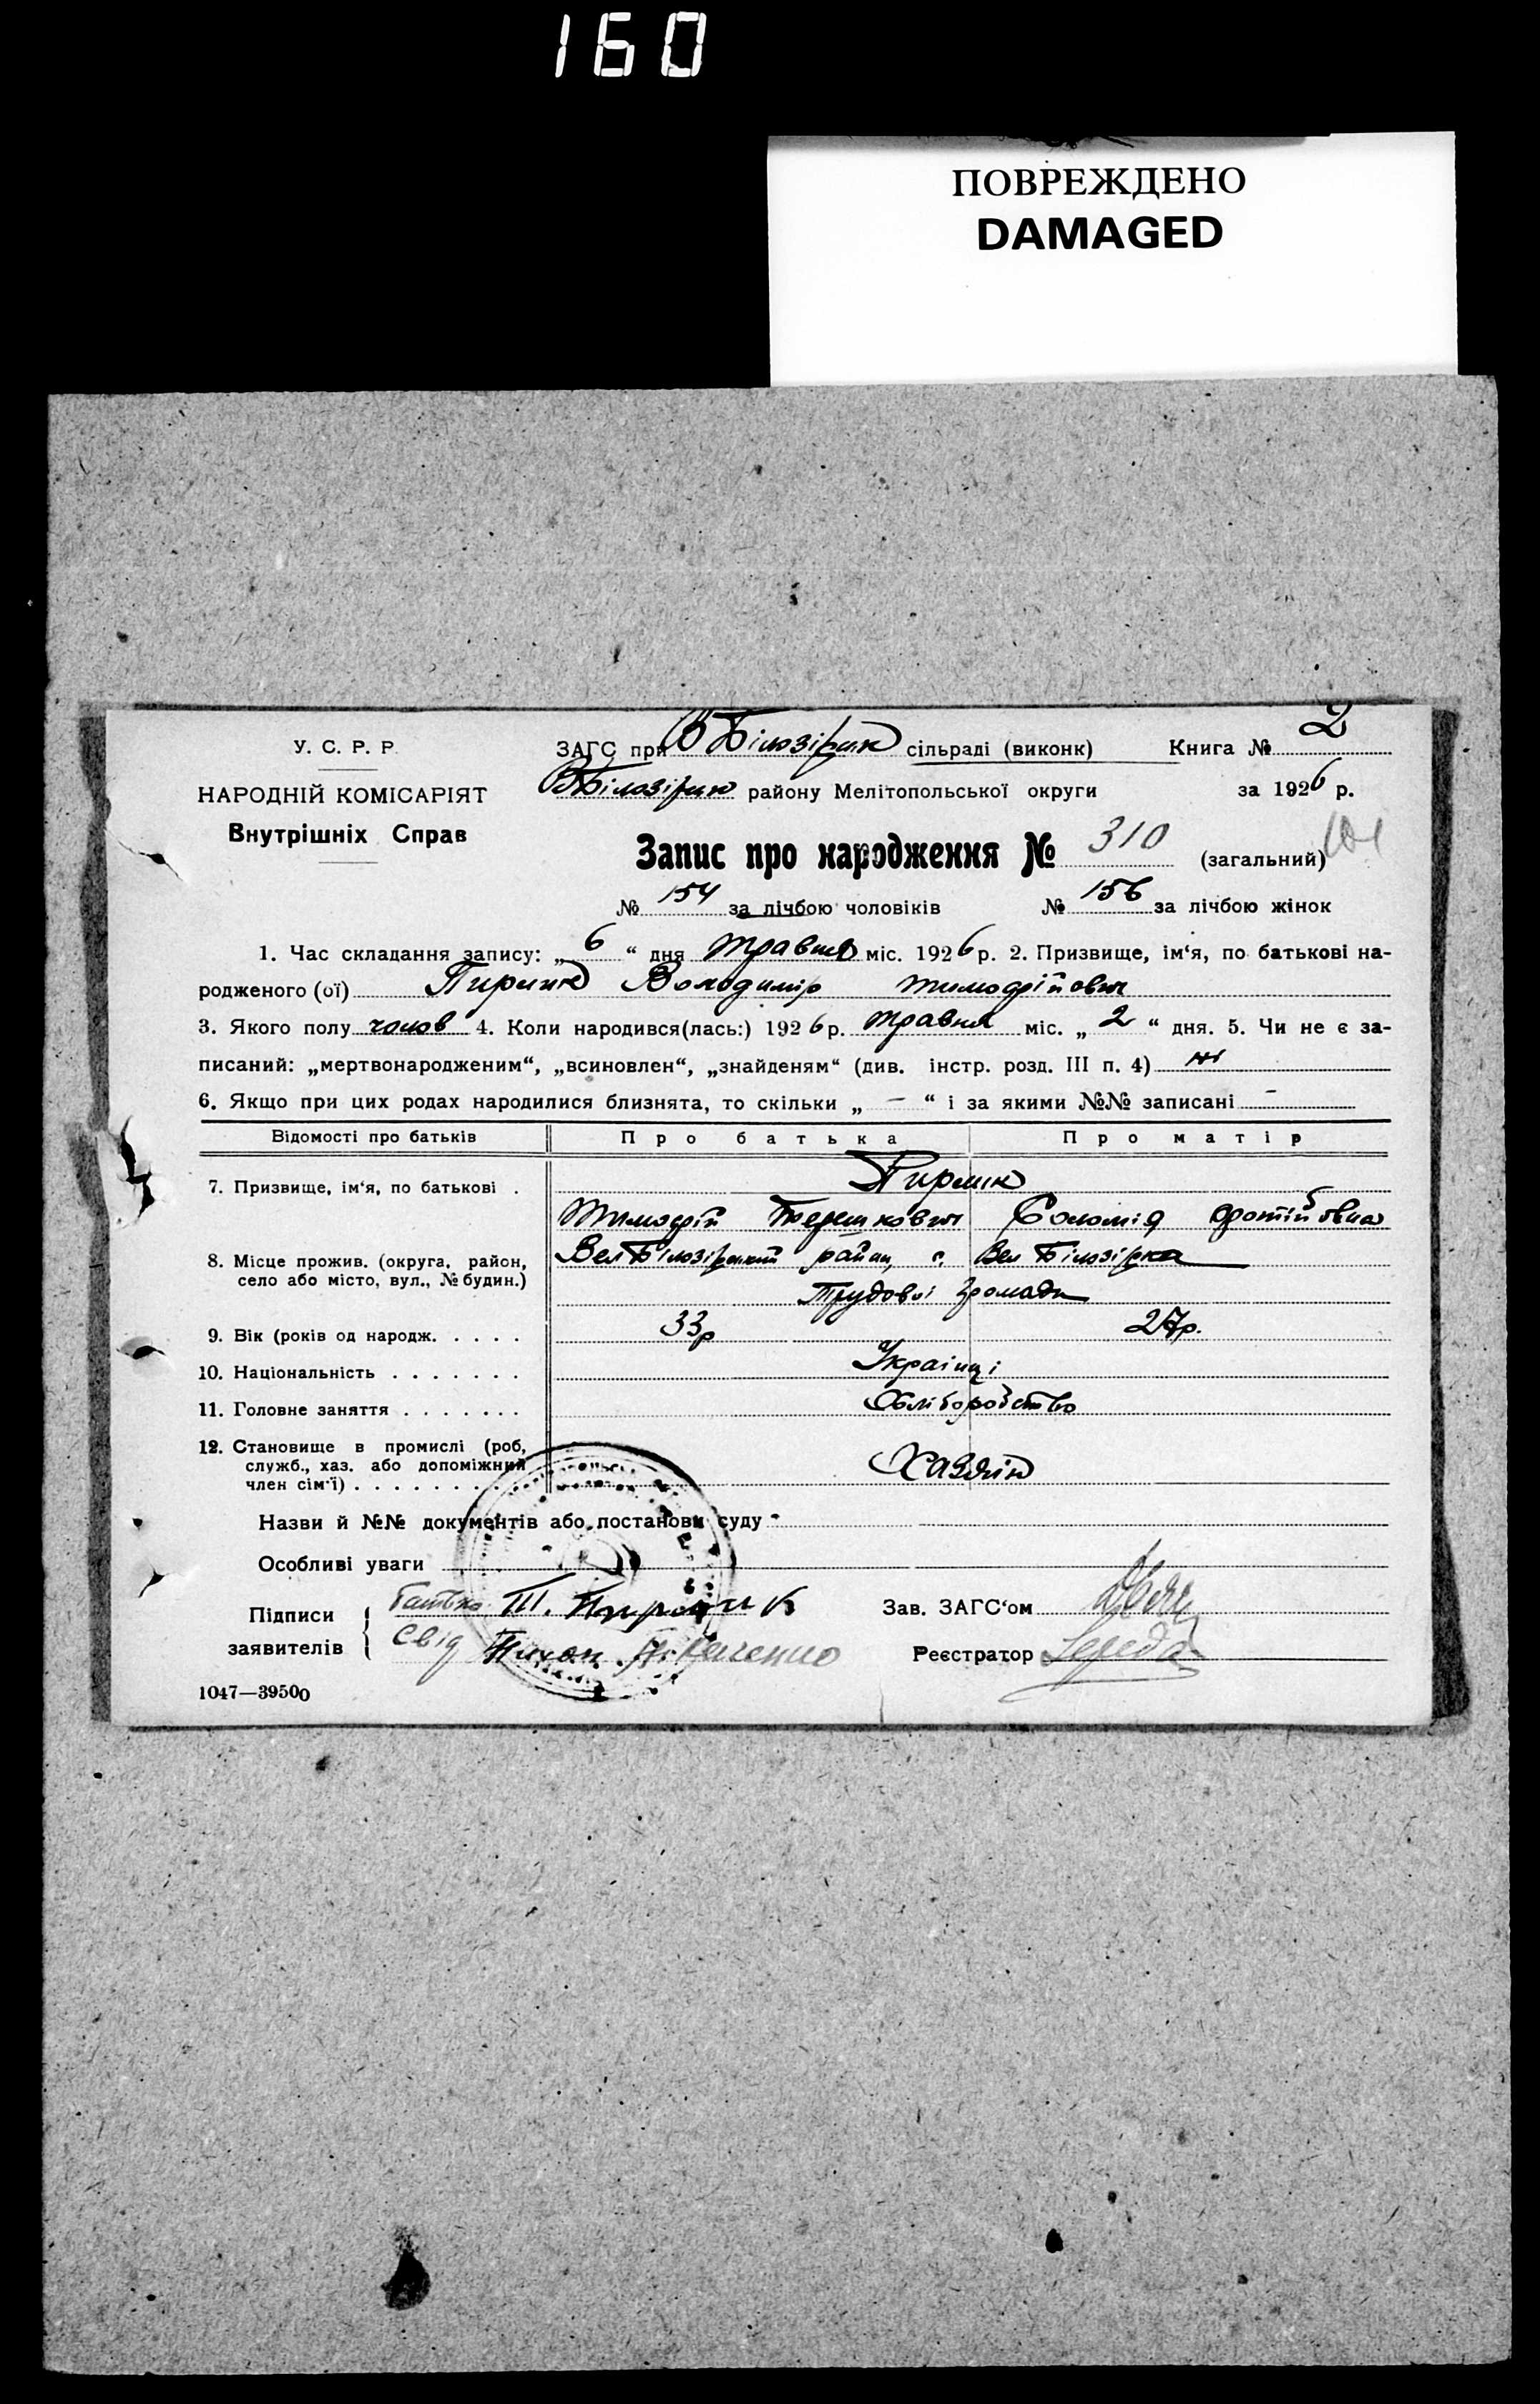 160
ПОВРЕЖДЕНО
DAMAGED
У. С. Р. Р.
НАРОДНІЙ КОМІСАРІЯТ
Внутрішніх Справ
ЗАГС при В Білозірск сільраді (виконк) Книга № 2
ВБілозірск району Мелітопольської округи за 1926 р.
Запис про народження № 310 (загальний) 101
№ 154 за лічбою чоловіків № 156 за лічбою жінок
1. Час складання запису: „ 6 “ дня травня міс. 1926 р. 2. Призвище, ім‘я, по батькові на-
родженого (ої) Володимір Тимофійович
3. Якого полу чолов 4. Коли народився(лась:) 1926 р. травня міс. „ 2 “ дня. 5. Чи не є за-
писаний: „мертвонародженим“, „всиновлен“, „знайденям“ (див. інстр. розд. III п. 4) ні
6. Якщо при цих родах народилися близнята, то скільки „ — “ і за якими №№ записані —
Відомості про батьків Про батька Про матір
7. Призвище, ім‘я, по батькові .
Тимофій Терешкович Соломія
8. Місце прожив. (округа, район,
село або місто, вул., № будин.)
Вел Білозірський район, с. Вел Білозірка
Трудової громади
9. Вік (років од народж. . . . . 33р 27р.
10. Національність . . . . . . . Українці
11. Головне заняття . . . . . . . Хліборобство
12. Становище в промислі (роб,
служб., хаз. або допоміжний
член сім‘ї) . . . . . . . . . Хазяїн
Назви й №№ документів або постанови суду -
Особливі уваги
Підписи
заявителів
батько Т.
Свід Тихон
Зав. ЗАГС‘ом
Реєстратор Середа
1047—39500